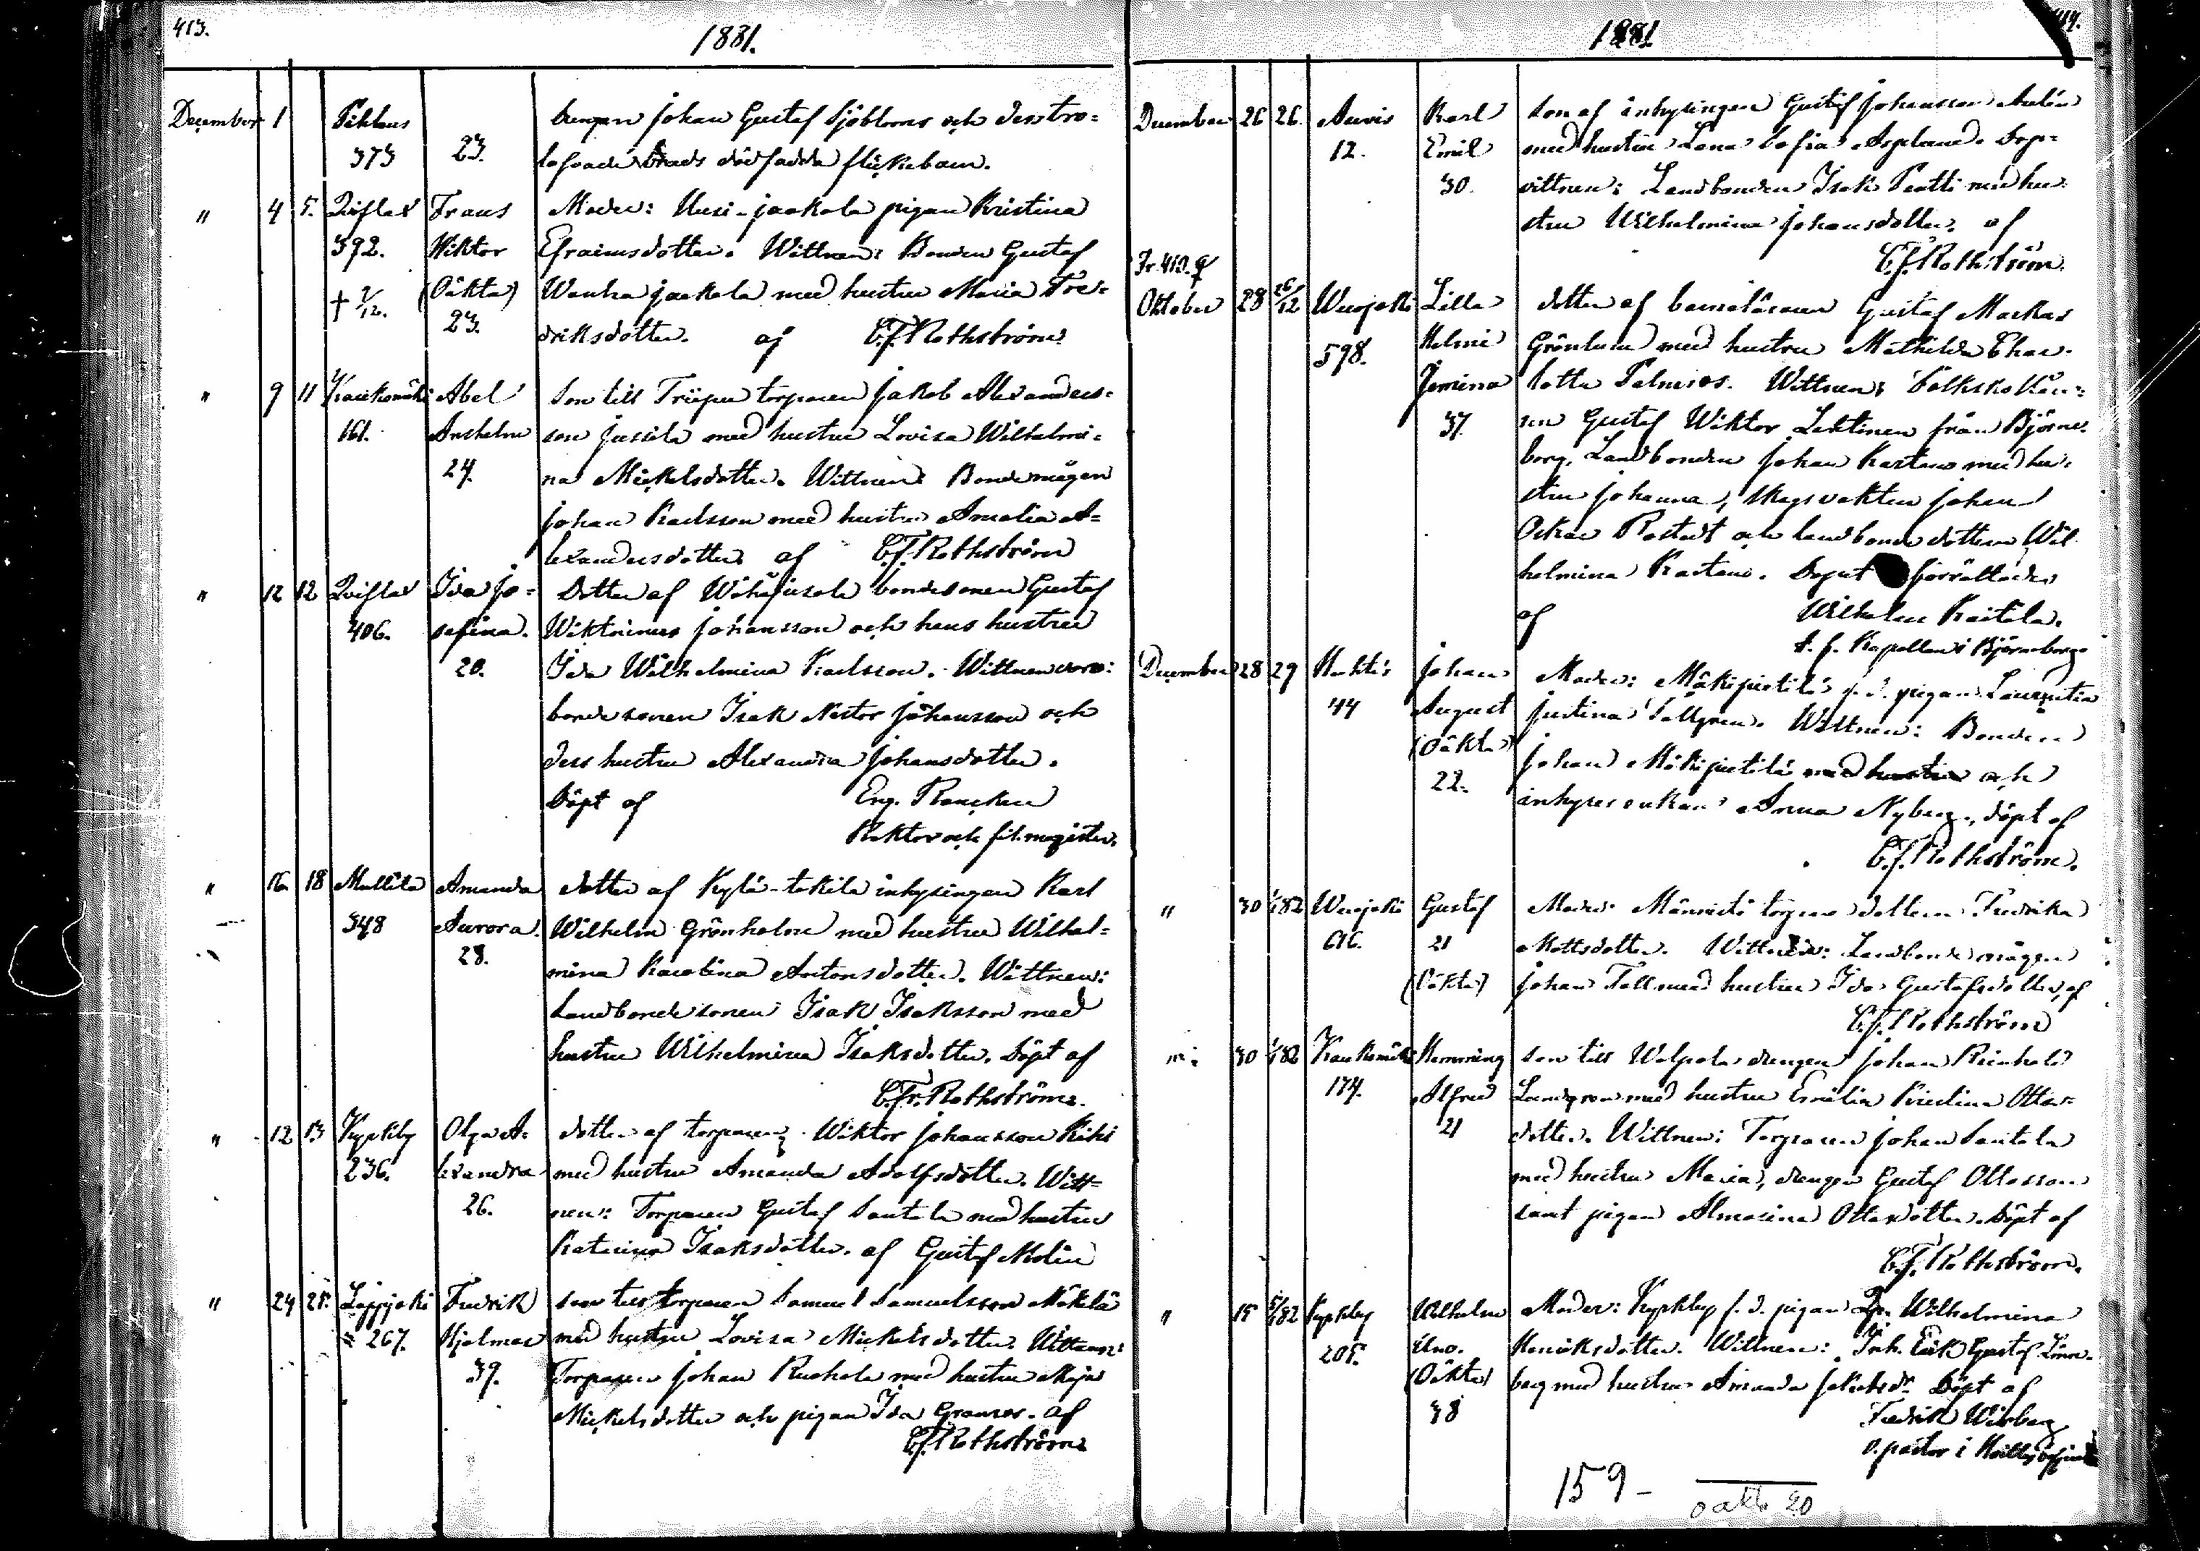 413.
1881.
December 1
373
23.
Drengen Johan Gustaf Sjöbloms och dess tro=
lofvade dödfödda flickebarn.
" 4 5. Luflax Frans
392. Wiktor
(Oäkta)
23.
Moder: Uusi-jaakola pigan Kristina
Efraimsdotter. Wittnen: Bonden Gustaf
Wanha jaakola med hustru Maria Fre=
driksdotter. af C.F. Rothström
" 9 11 Kraaikomäki Abel
161. Anshelm
24.
Son till torparen Jakob Alexanders=
son Jussila med hustru Lovisa Wilhelmi=
na Mickelsdotter. Wittnen: Bondemågen
Johan Karlsson med hustru Amalia A=
lexandersdotter af C.F. Rothström
" 12 12 Luflax Ida Jo=
406. sefina.
20.
Dotter af bondesonen Gustaf
Johansson och hans hustru
Ida Wilhelmina Karlsson. Wittnen voro:
bondesonen Isak Nestor Johansson och
dess hustru Alexandra Johansdotter.
Döpt af
Rektor och fil. magister.
" 16 18 Mallila Amanda
348 Aurora.
28.
dotter af Kylä-takila inhysingen Karl
Wilhelm Grönholm med hustru Wilhel=
mina Karolina Antonsdotter. Wittnen:
Landbondesonen Isak Isaksson med
hustru Wilhelmina Isaksdotter. Döpt af
C.Fr. Rothström.
" 12 13 Kyrkby Olga A=
236. lexandra
26.
dotter af torparen Wiktor Johansson
med hustru Amanda Adolfsdotter. Witt=
nen: Torparen Gustaf Santala med hustru
Katarina Isaksdotter. af Gustaf Molin
" 24 25. Lappjoki Fredrik
267. Hjalmar
39.
son till torparen Samuel Samuelsson Mäkelä
med hustru Lovisa Mickelsdotter. Wittnen:
Torparen Johan Ruohola med hustru Maja
Mickelsdotter och pigan Ida Granroos. af
C.F. Rothström
414.
1881
December 26 26. Auvis Karl
12. Emil
30.
son af inhysingen Gustaf Johansson
med hustru Lena Sofia Asplund. Dop=
vittnen: Landbonden Isak Peatti med hu=
stru Wilhelmina Johansdotter. af
C.F. Rothström.
Oktober 28 26/12 Werojoki
598. Helmi
37.
dotter af Gustaf Markus
Grönlund med hustru Mathilda Char=
lotta Wittnen: Folkskollära=
ren Gustaf Wiktor Lehtinen från Björne=
borg, Landbonden Johan Kartano med hu=
stru Johanna, skogsvakten Johan
Oskar och landbonde dottren Wil=
helmina Kartano. Dopet förrättades
af Wilhelm
Kapellan i Björneborg.
December 28 29 Johan
44 August
(Oäkta)
22.
Moder: f.d. pigan Laurentia
Justina Tallgren. Wittnen: Bonden
Johan med hustru och
inhyses enkan Anna Nyberg, döpt af
C.F. Rothström.
" 30 1/1 82 Werojoki Gustaf
616. 21
(Oäkta)
Moder: Männistö torpare dottern Fredrika
Mattsdotter. Wittnen: Landbonde mågen
Johan Tall med hustru Ida Gustafsdotter, af
C.F. Rothström
30 1/1 82 Hemming
174. Alfred
21
son till drengen Johan Reinhold
Lundgren med hustru Emilia Kristina Otto=
dotter. Wittnen: Torparen Johan Santala
med hustru Maria, drengen Gustaf Ottosson
samt pigan Almasina Ottosdotter. Döpt af
C.F. Rothström.
" 15 5/1 82 Kyrkby Wilhelm
205. Uno.
(Oäkta)
38
Moder: Kyrkby f.d. pigan Wilhelmina
Henriksdotter. Wittnen: Inh. Erik Gustaf Lönn=
berg med hustru Amanda Jakobsdr. Döpt af
Fredrik Wiberg
v. pastor i
159 -
oäkta 20